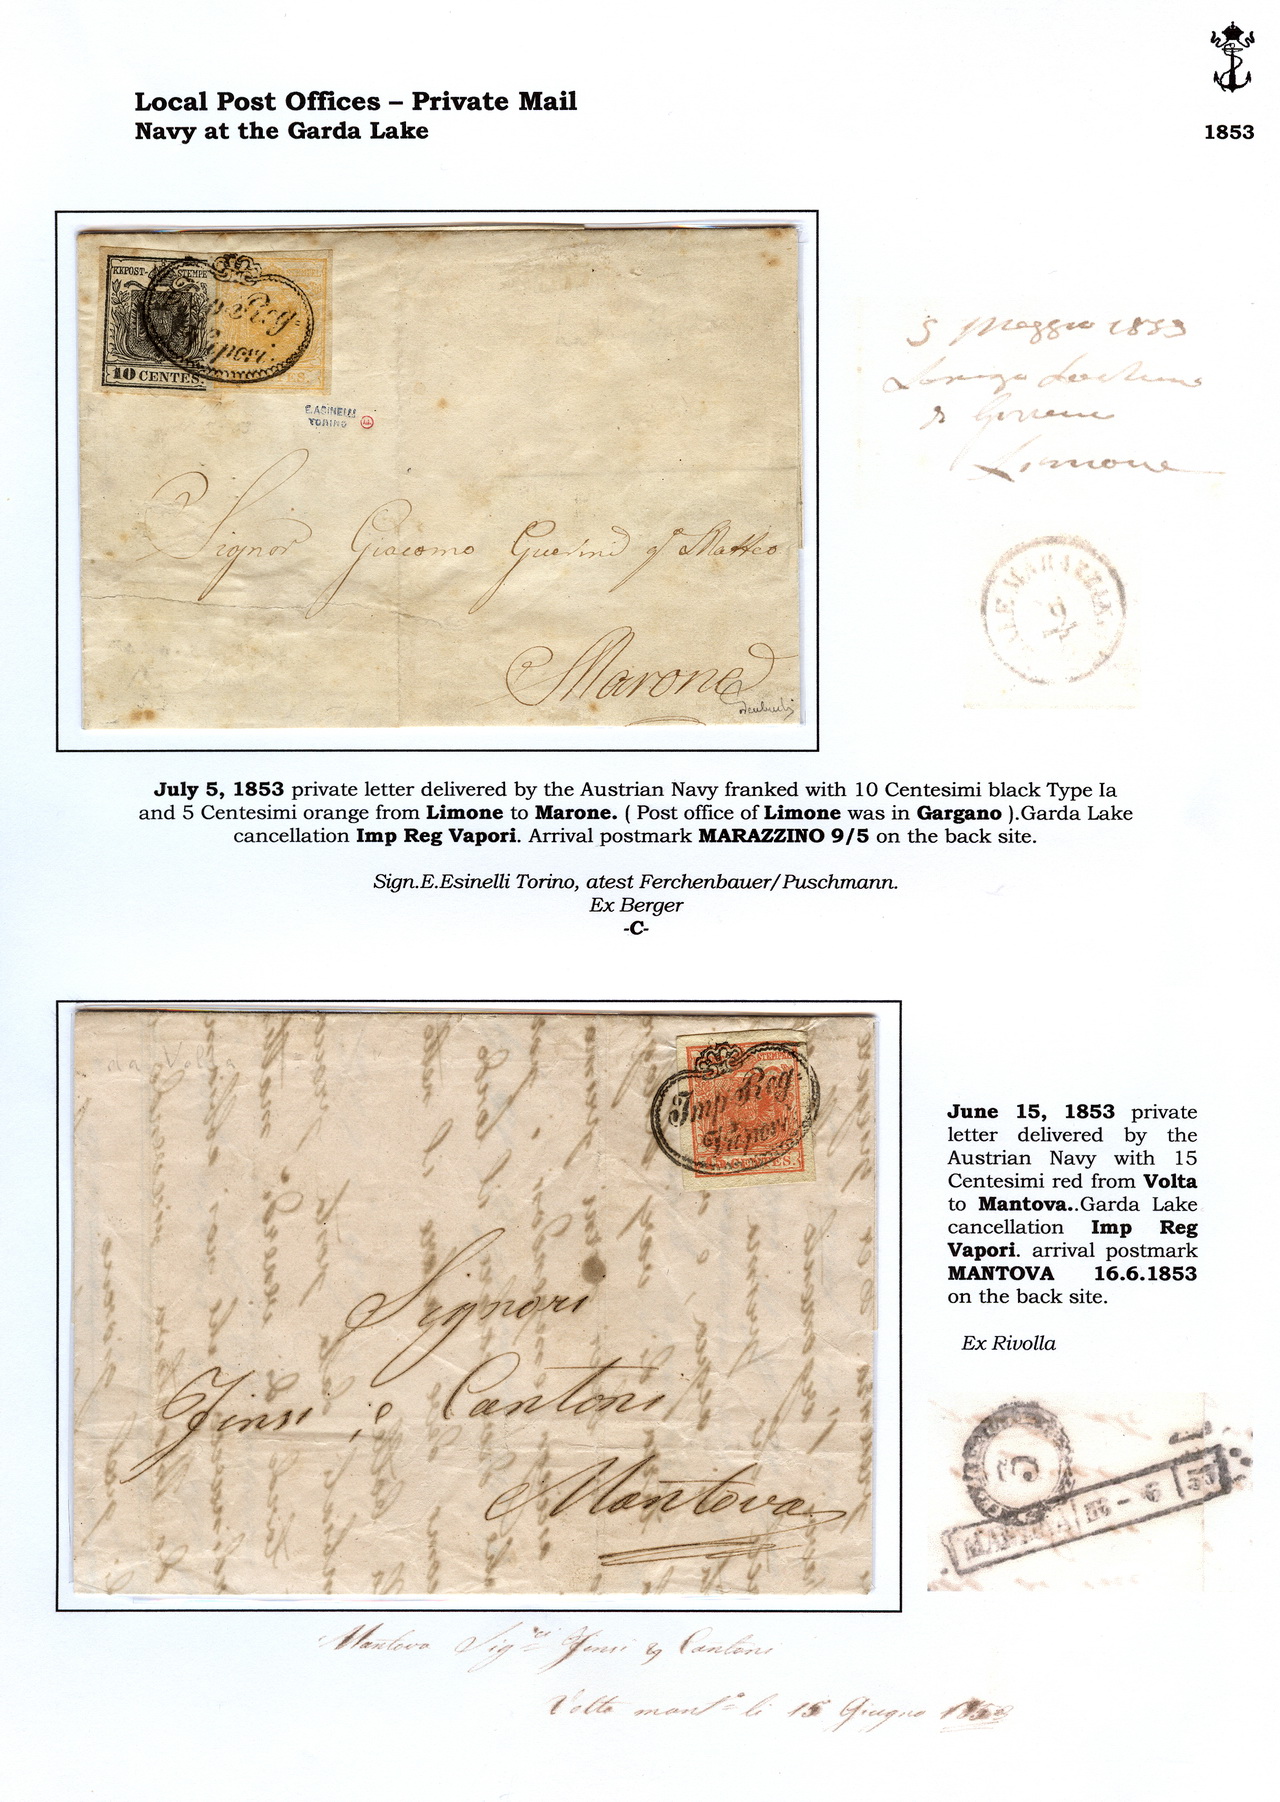 Local Post Offices – Private Mail
Navy at the Garda Lake
1853
KKPOST- STEMPE
10 CENTES.
Imp Reg
Vapori.
E.ASINELLI
TORINO
Signor Giacomo Guerini qm Matteo
Marone
5 Maggio 1853
Limone
July 5, 1853 private letter delivered by the Austrian Navy franked with 10 Centesimi black Type Ia
and 5 Centesimi orange from Limone to Marone. ( Post office of Limone was in Gargano ).Garda Lake
cancellation Imp Reg Vapori. Arrival postmark MARAZZINO 9/5 on the back site.
Sign.E.Esinelli Torino, atest Ferchenbauer/Puschmann.
Ex Berger
-C-
STEMPEL
Imp Reg
Vapori
CENTES.
Signori
Finsi e Cantoni
Mantova
June 15, 1853 private
letter delivered by the
Austrian Navy with 15
Centesimi red from Volta
to Mantova..Garda Lake
cancellation Imp Reg
Vapori. arrival postmark
MANTOVA 16.6.1853
on the back site.
Ex Rivolla
Mantova Sigri Finsi & Cantoni
Volta mantna li 15 Giugno 1853